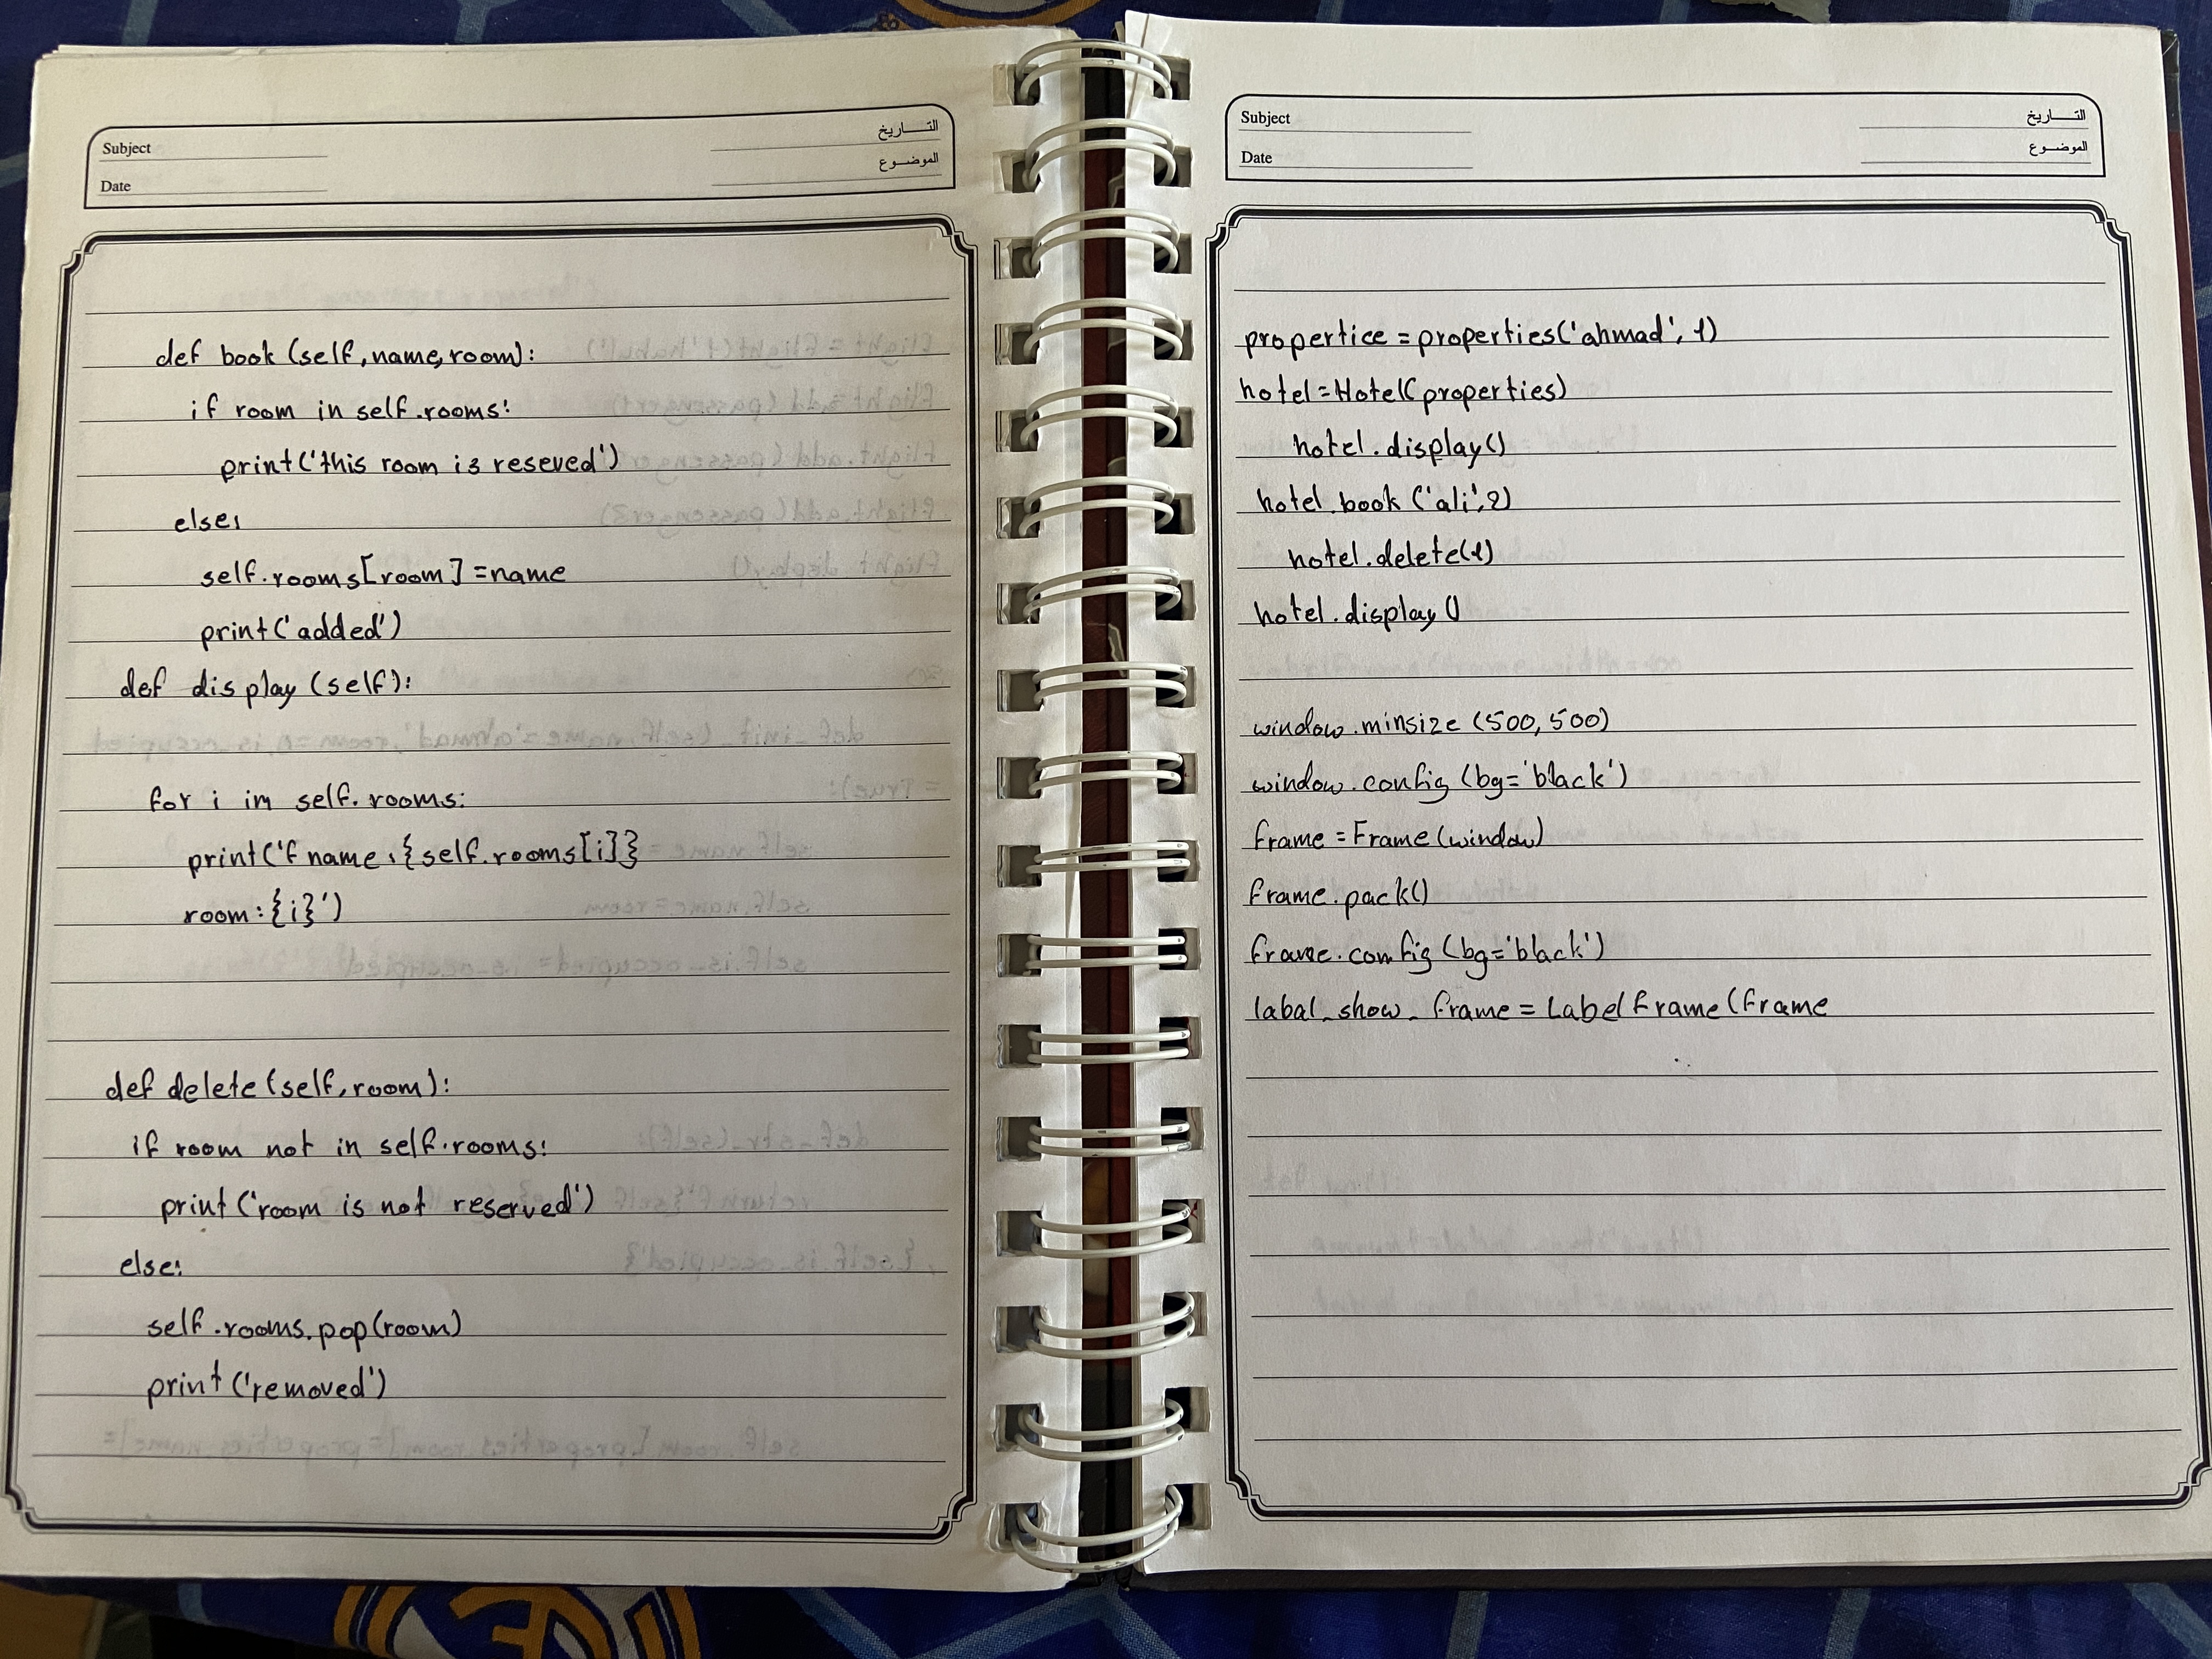 Subject
التـــاريخ
Date
الموضـــوع
def book(self,name,room):
if room in self.rooms:
print('this room is reseved')
else:
self.rooms[room]=name
print('added')
def display(self):
for i in self.rooms:
print('f name,{self.rooms[i]}
room:{i}')
def delete(self,room):
if room not in self.rooms:
print('room is not reserved')
else:
self.rooms.pop(room)
print('removed')
Subject
التـــاريخ
Date
الموضـــوع
propertice=properties('ahmad',1)
hotel=Hotel(properties)
hotel.display()
hotel.book('ali',2)
hotel.delete(1)
hotel.display()
window.minsize(500,500)
window.config(bg='black')
frame=Frame(window)
frame.pack()
frame.config(bg='black')
labal_show_frame=Labelframe(frame